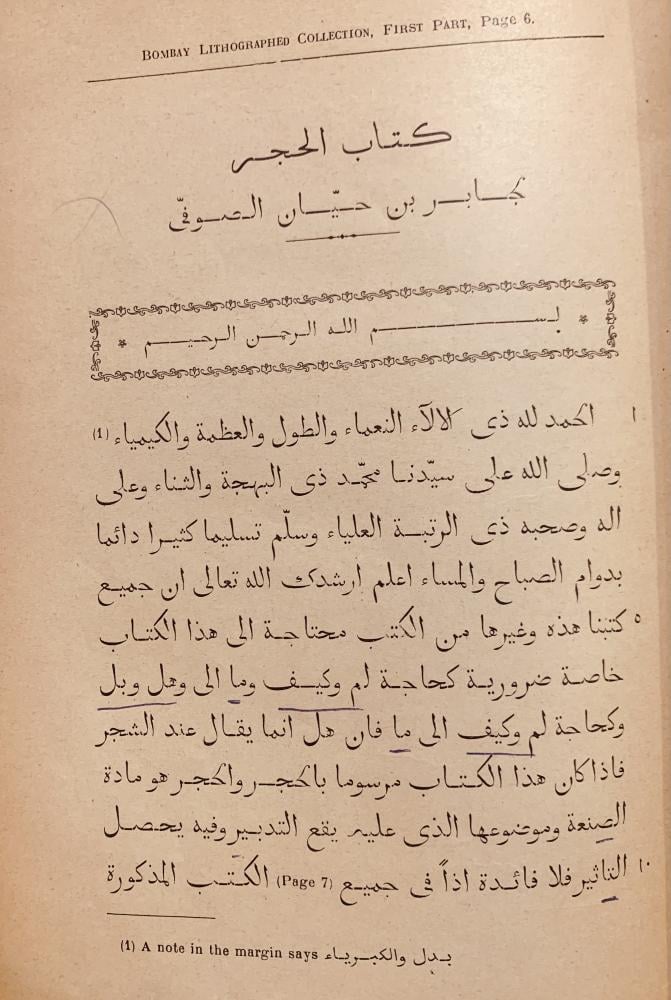 BOMBAY LITHOGRAPHED COLLECTION, FIRST PART, Page 6.
كتاب الحجر
لجابر بن حيّان الصوفىّ
* بسم الله الرحمن الرحيم *
١ الحمد لله ذى الالآء النعماء والطول والعظمة والكيمياء (1)
وصلى الله على سيّدنا محمّد ذى البهجة والثناء وعلى
اله وصحبه ذى الرتبة العلياء وسلّم تسليما كثيرا دائما
بدوام الصباح والمساء اعلم ارشدك الله تعالى ان جميع
٥ كتبنا هذه وغيرها من الكتب محتاجة الى هذا الكتاب
خاصة ضرورية كحاجة لم وكيف وما الى وهل وبل
وكحاجة لم وكيف الى ما فان هل انما يقال عند الشجر
فاذا كان هذا الكتاب مرسوما بالحجر والحجر هو مادة
الصنعة وموضوعها الذى عليه يقع التدبير وفيه يحصل
١٠ التاثير فلا فائدة اذاً فى جميع (Page 7) الكتب المذكورة
(1) A note in the margin says بدل والكبرياء